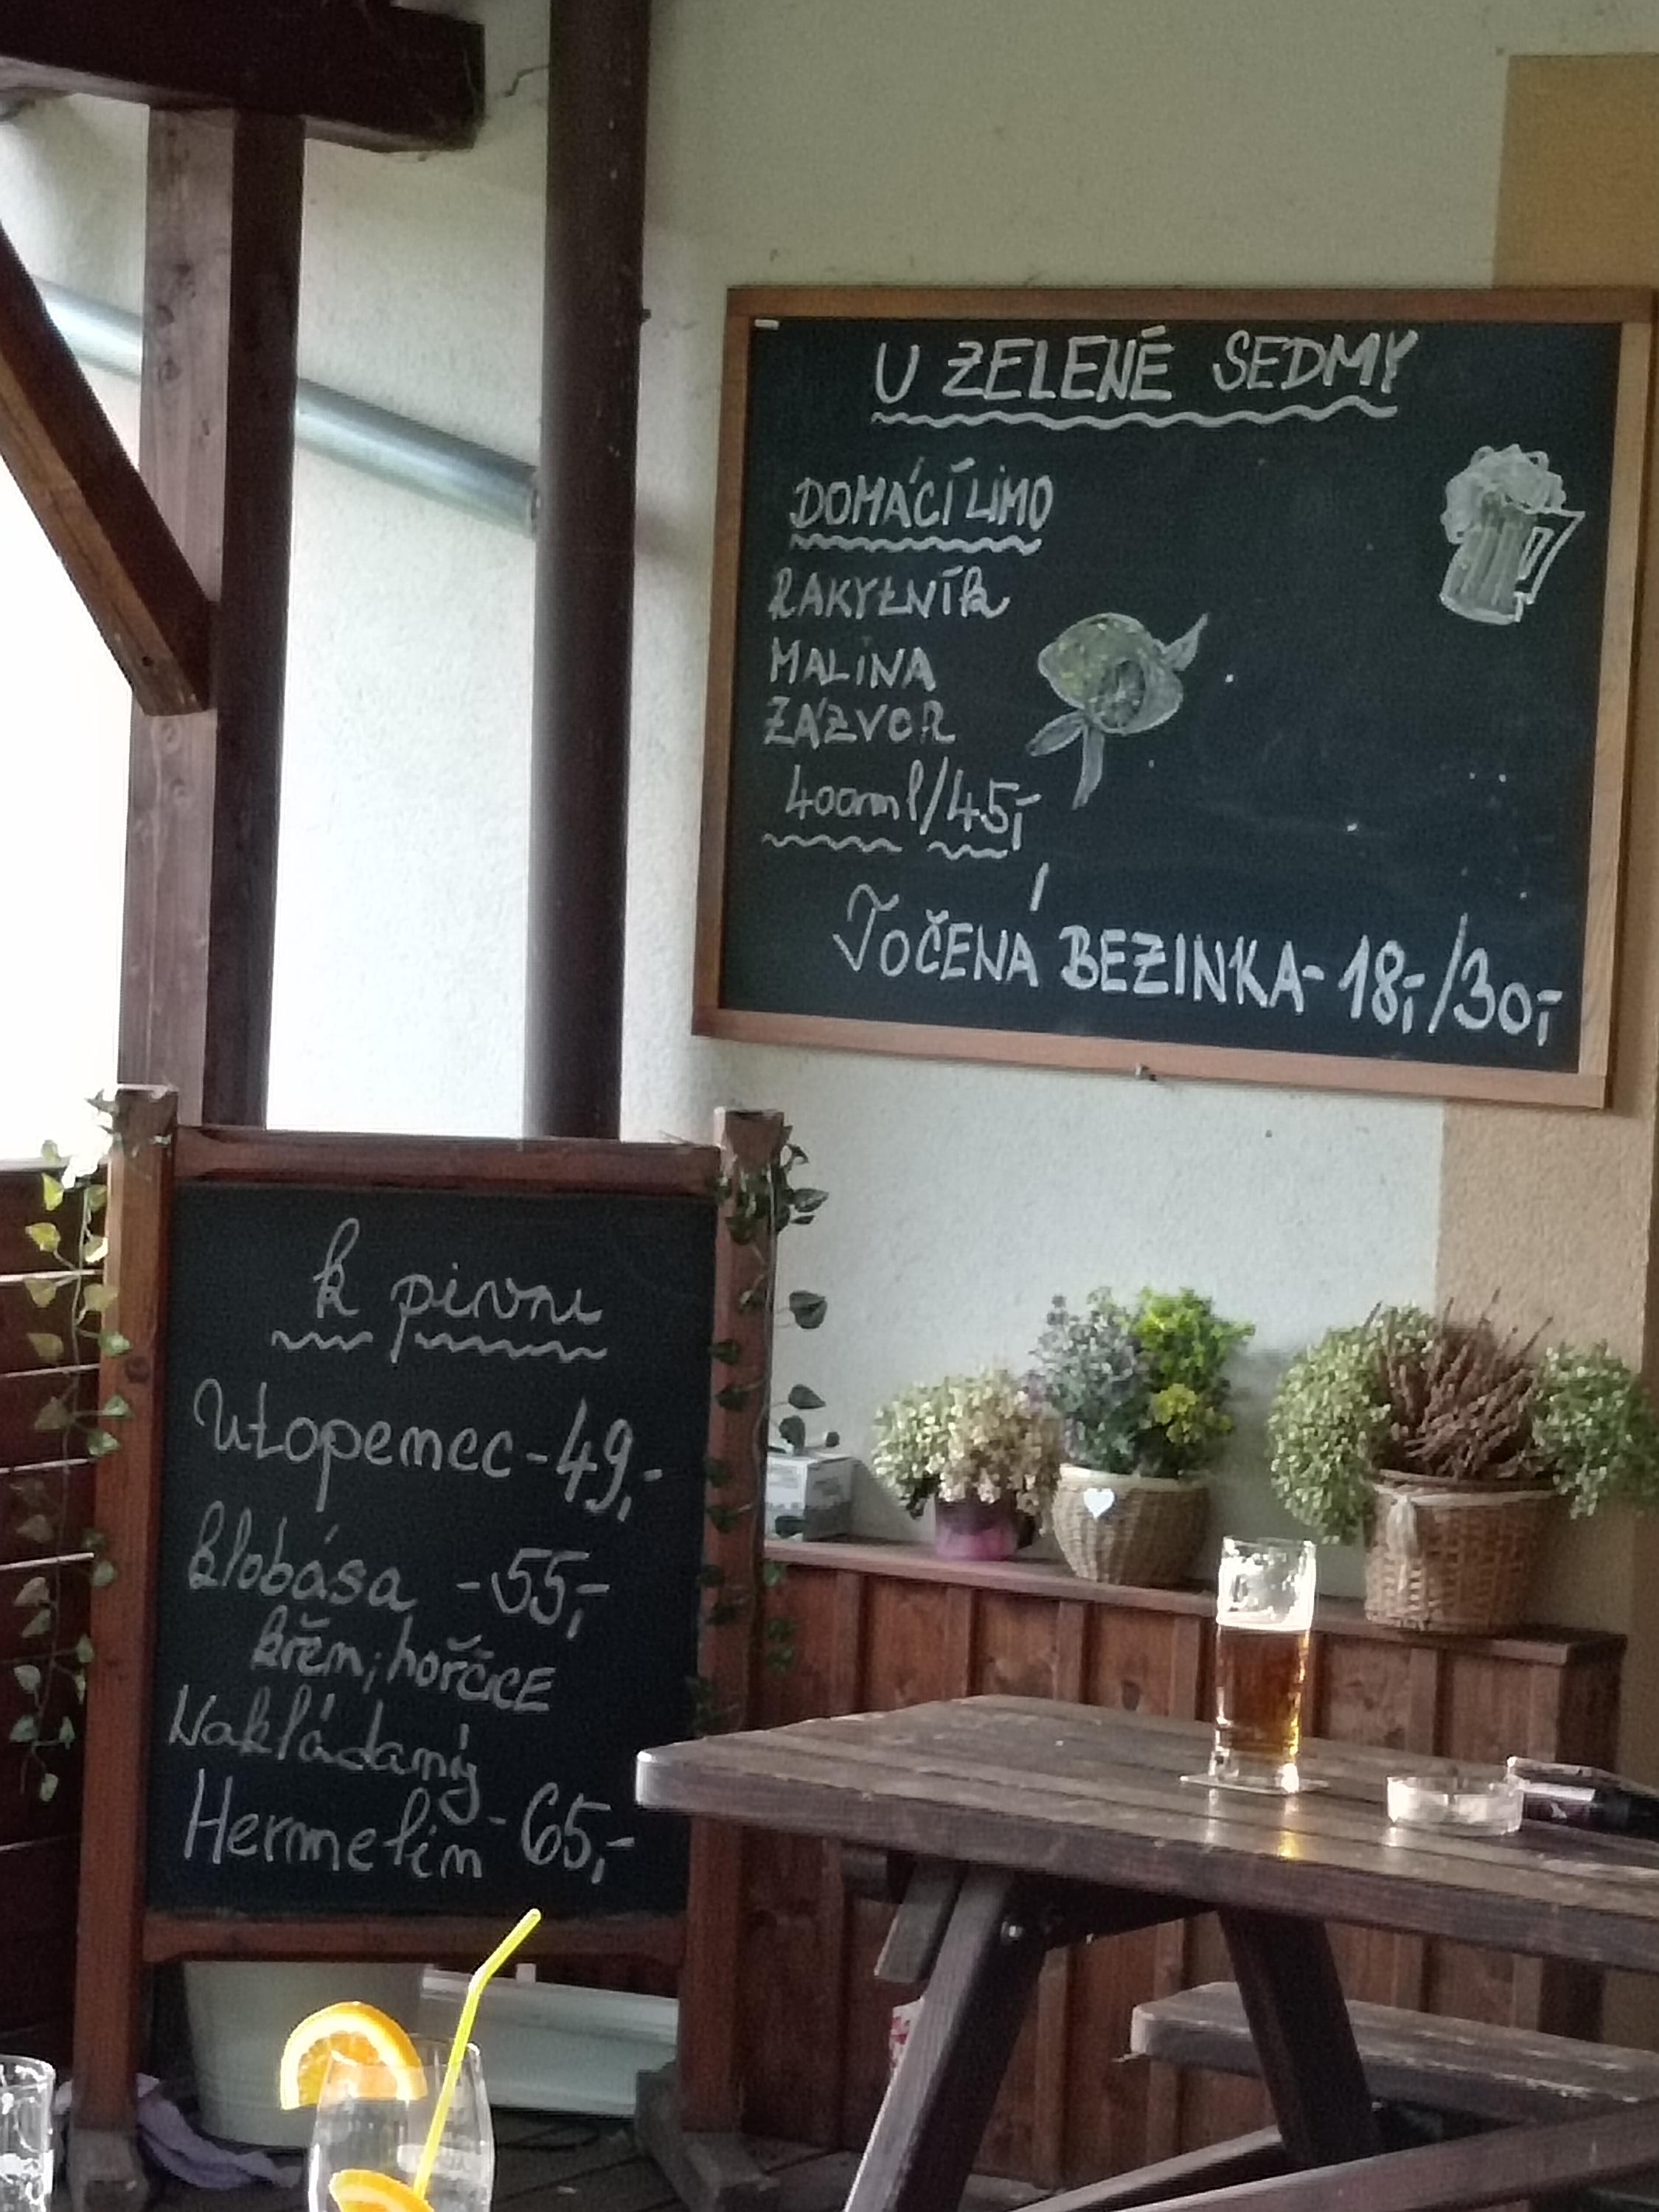 U ZELENÉ SEDMY
DOMÁCÍ LIMO
RAKYTNÍK
MALINA
ZÁZVOR
400ml/45,-
TOČENÁ BEZINKA - 18,-/30,-
k pivu
Utopenec - 49,-
klobása - 55,-
křen, hořčice
Nakládaný
Hermelín - 65,-